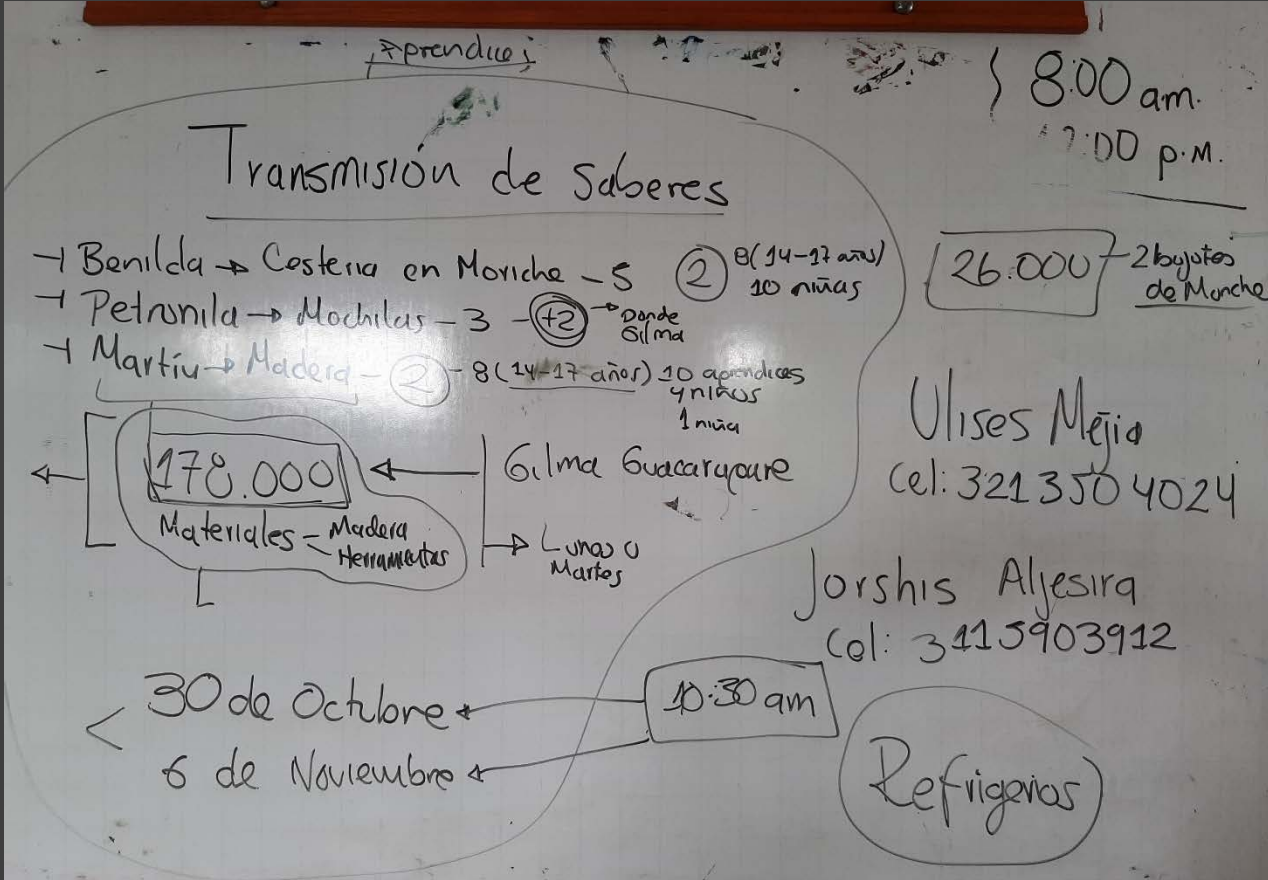 Aprendices
8:00 am.
:00 p.M.
Transmisión de Saberes
Benilda → Cesteria en Moriche - 5 2 8 (14-17 años)
10 niñas
Petronila → Mochilas - 3 - +2 → Donde
Gilma
Martín → Madera - 2 - 8 (14-17 años) 10 aprendices
4 niños
1 niña
26.000 - 2
de Moriche
178.000
Materiales - Madera
- Herramientas
Gilma
→ Lunes o
Martes
Ulises Mejia
Cel: 321 350 4024
Jorshis Aljesira
Cel: 3115903912
30 de Octubre
6 de Noviembre
10:30 am
Refrigerios